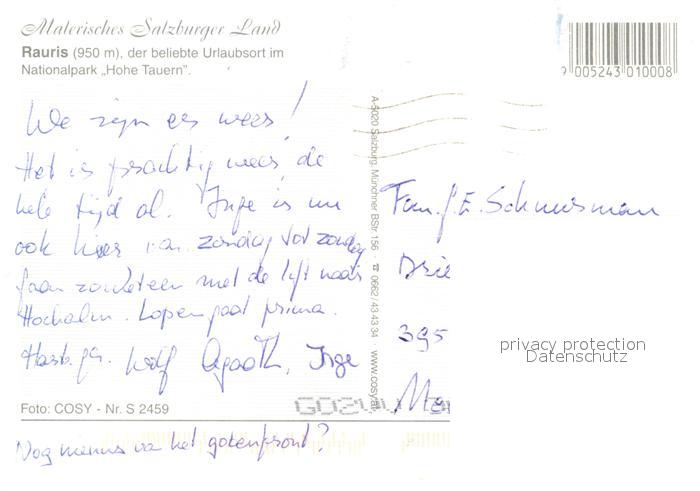 Malerisches Salzburger Land
Rauris (950 m), der beliebte Urlaubsort im
Nationalpark „Hohe Tauern".
9 005243 010008
We zijn er weer!
Het is prachtig weer, de
hele tijd al. Inge is nu
ook hier van zondag tot zondag
gaan zometeen met de lift naar
Hochalm. Lopen gaat prima.
Hart. gr. Agaath, Inge
A-5020 Salzburg, Münchner BStr. 156 - ☎ 0662/43 43 34 www.cosy.at
Fam. J.E. Schuurman
Drie
395
privacy protection
Datenschutz
Foto: COSY - Nr. S 2459
Nog nieuws van het front?